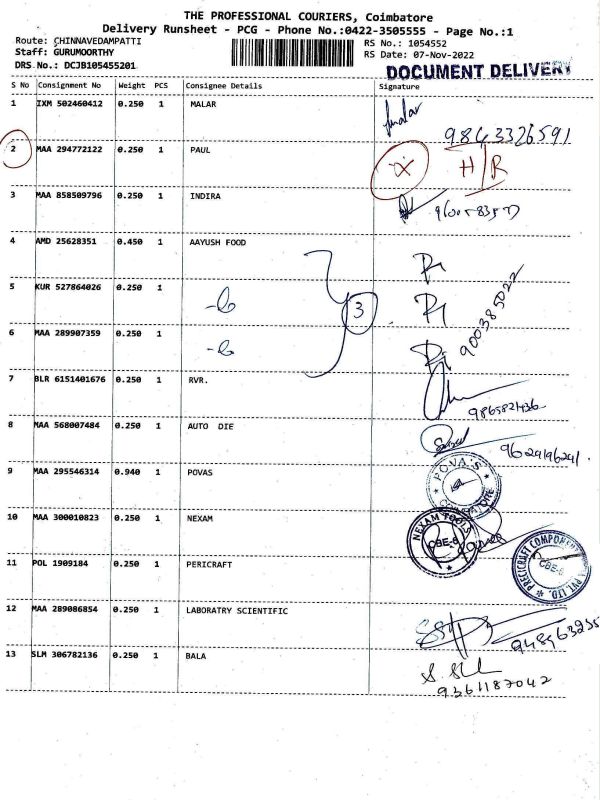 THE PROFESSIONAL COURIERS, Coimbatore
Delivery Runsheet - PCG - Phone No.:0422-3505555 - Page No.:1
Route: CHINNAVEDAMPATTI
Staff: GURUMOORTHY
DRS No.: DCJB105455201
RS No.: 1054552
RS Date: 07-Nov-2022
DOCUMENT DELIVERY
S No Consignment No Weight PCS Consignee Details Signature
1 IXM 502460412 0.250 1 MALAR
9843326591
2 MAA 294772122 0.250 1 PAUL H/R
3 MAA 858509796 0.250 1 INDIRA
4 AMD 25628351 0.450 1 AAYUSH FOOD
5 KUR 527864026 0.250 1
3
900385022
6 MAA 289907359 0.250 1
7 BLR 6151401676 0.250 1 RVR.
9865821436
8 MAA 568007484 0.250 1 AUTO DIE
9629196291
9 MAA 295546314 0.940 1 POVAS
POVA'S
10 MAA 300010823 0.250 1 NEXAM
NEXAM TOOLS
CBE-6
11 POL 1909184 0.250 1 PERICRAFT
PRECICRAFT COMPONENTS PVT. LTD.
CBE-6
12 MAA 289086854 0.250 1 LABORATRY SCIENTIFIC
13 SLM 306782136 0.250 1 BALA
9361187042